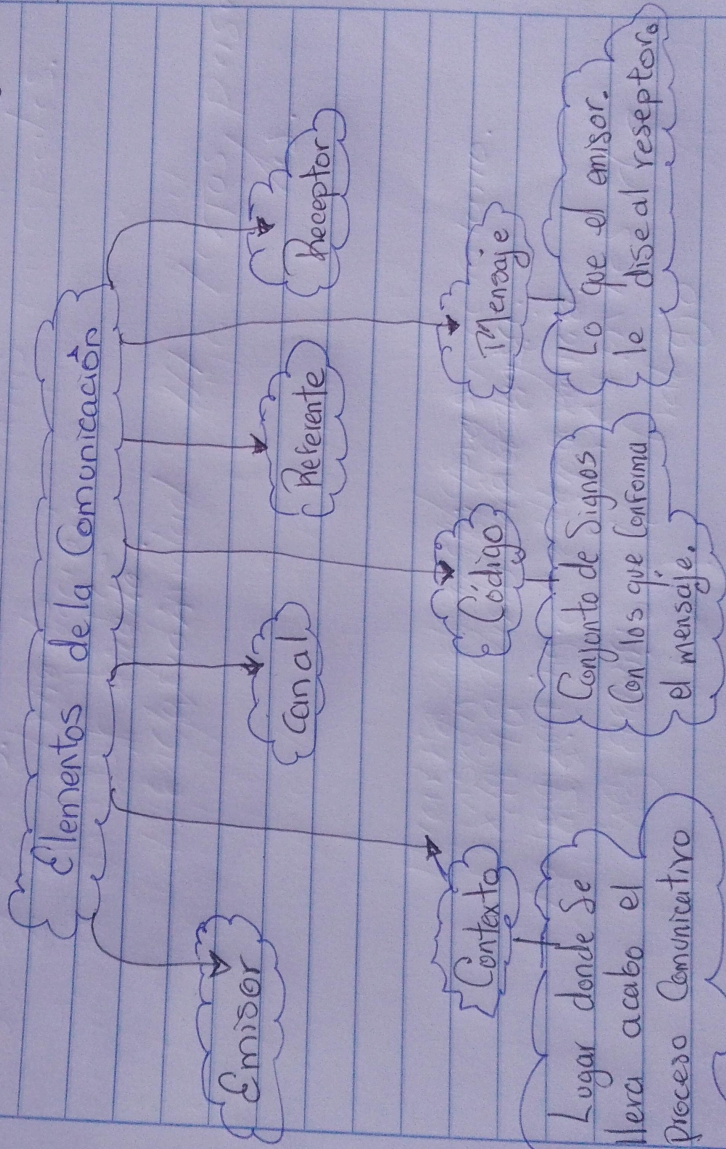 Elementos de la Comunicación
Emisor
Canal
Referente
Receptor
Contexto
Código
Mensaje
Lugar donde Se
lleva acabo el
proceso Comunicativo
Conjonto de Signos
Con los que Conforma
el mensaje.
Lo que el emisor.
le dise al reseptor.